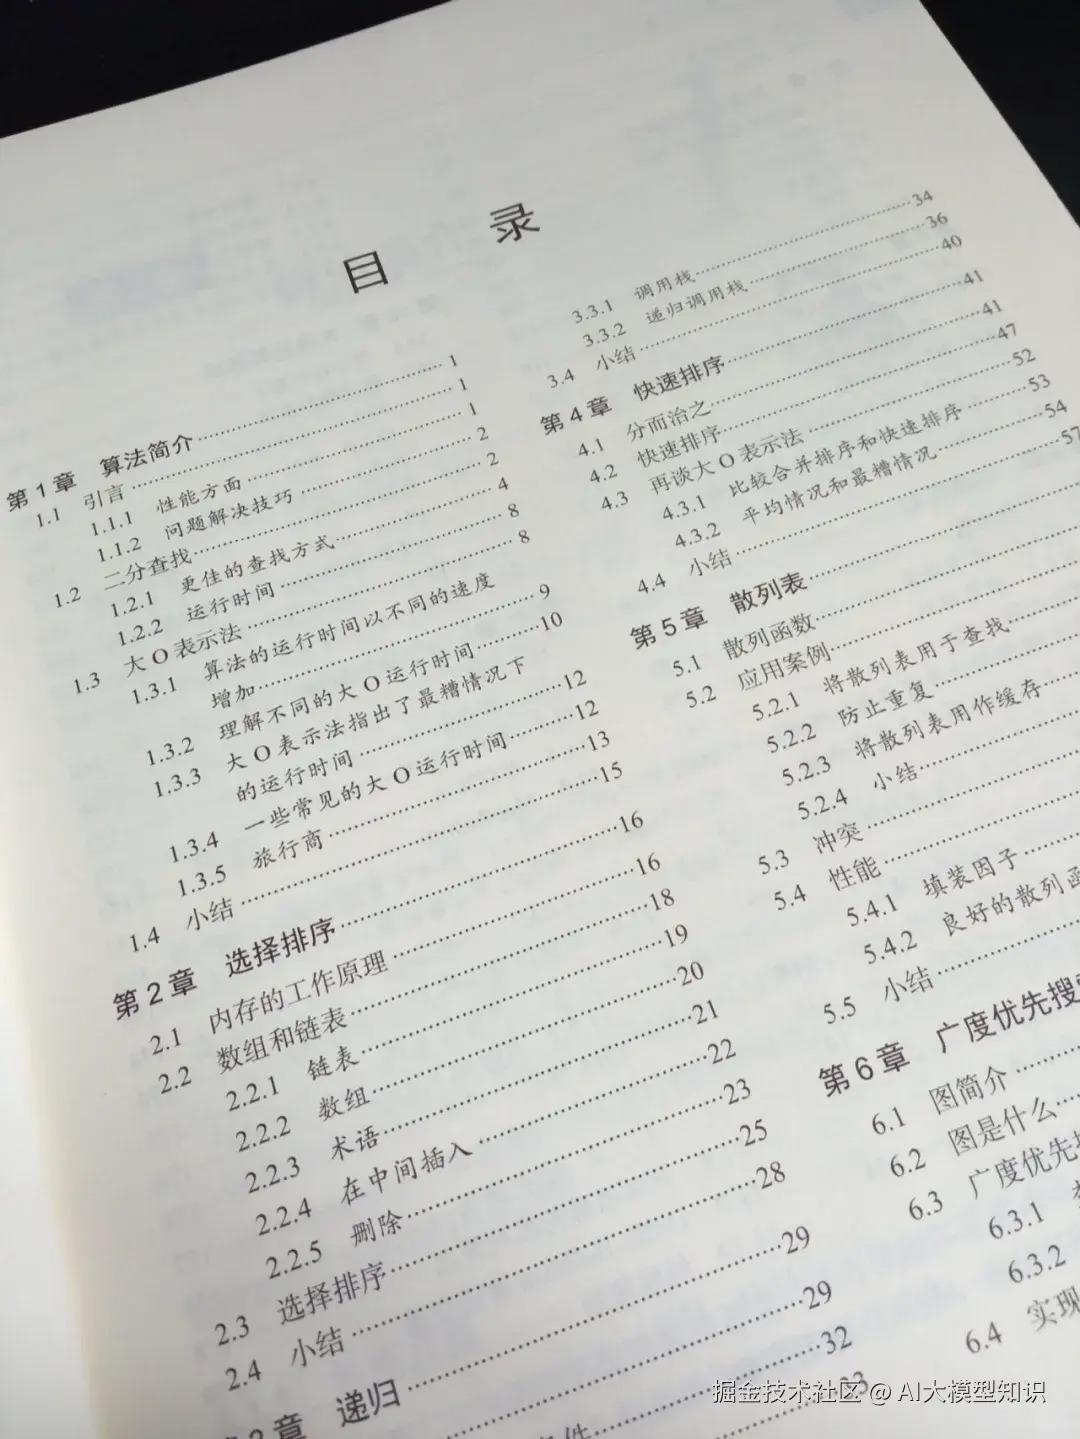 目 录
第1章 算法简介……1
1.1 引言……1
1.1.1 性能方面……1
1.1.2 问题解决技巧……2
1.2 二分查找……2
1.2.1 更佳的查找方式……4
1.2.2 运行时间……8
1.3 大O表示法……8
1.3.1 算法的运行时间以不同的速度
增加……9
1.3.2 理解不同的大O运行时间……10
1.3.3 大O表示法指出了最糟情况下
的运行时间……12
1.3.4 一些常见的大O运行时间……12
1.3.5 旅行商……13
1.4 小结……15
第2章 选择排序……16
2.1 内存的工作原理……16
2.2 数组和链表……18
2.2.1 链表……19
2.2.2 数组……20
2.2.3 术语……21
2.2.4 在中间插入……22
2.2.5 删除……23
2.3 选择排序……25
2.4 小结……28
章 递归……29
29
32
3.3.1 调用栈……34
3.3.2 递归调用栈……36
3.4 小结……40
第4章 快速排序……41
4.1 分而治之……41
4.2 快速排序……47
4.3 再谈大O表示法……52
4.3.1 比较合并排序和快速排序……53
4.3.2 平均情况和最糟情况……54
4.4 小结……57
第5章 散列表……
5.1 散列函数……
5.2 应用案例……
5.2.1 将散列表用于查找……
5.2.2 防止重复……
5.2.3 将散列表用作缓存……
5.2.4 小结……
5.3 冲突……
5.4 性能……
5.4.1 填装因子……
5.4.2 良好的散列函
5.5 小结……
第6章 广度优先搜
6.1 图简介……
6.2 图是什么……
6.3 广度优先
6.3.1
6.3.2
6.4 实现
掘金技术社区 @ AI大模型知识